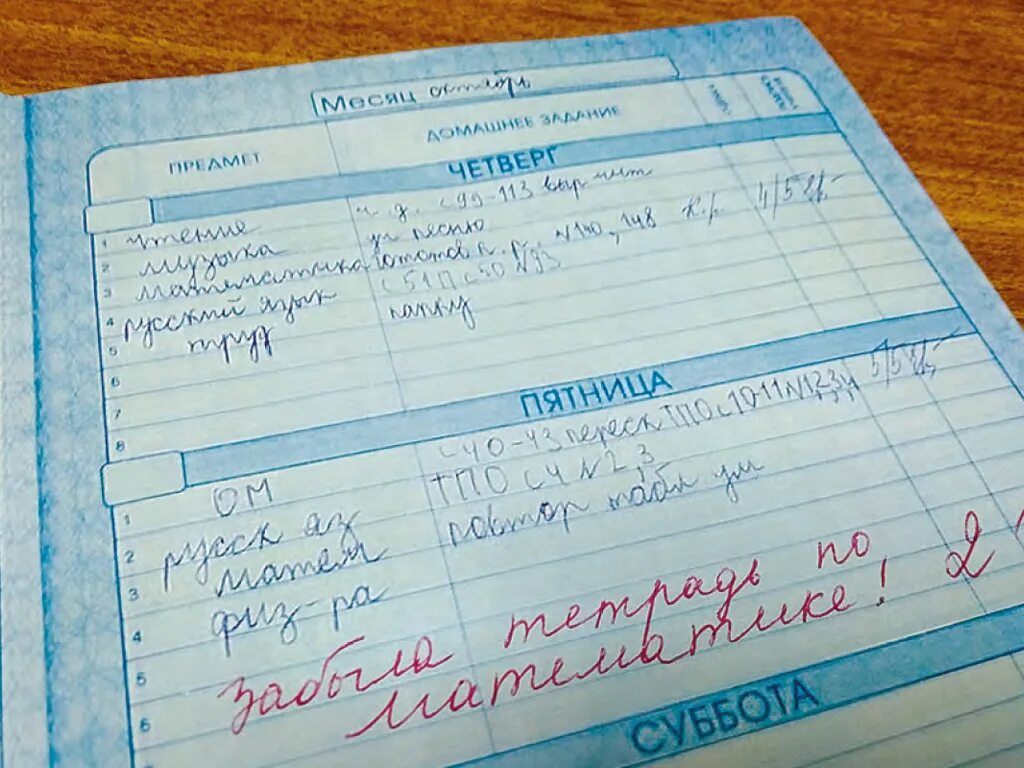 Месяц октябрь
ПРЕДМЕТ ДОМАШНЕЕ ЗАДАНИЕ
ЧЕТВЕРГ
1 чтение с 99-113 выр чит
2 музыка уч песню
3 математика готов к. р. N140, 148 К.р. 4/5
4 русский язык с 51 П с 50 N93
5 труд папку
6
7
8
ПЯТНИЦА
1 ОМ с 40-43 переск ТПО с 10-11 N1,2,3,4 5/5
2 русск яз ТПО с 4 N 2,3
3 матем повтор табл ум
4 физ-ра
5 забыла тетрадь по
6 математике! 2
СУББОТА